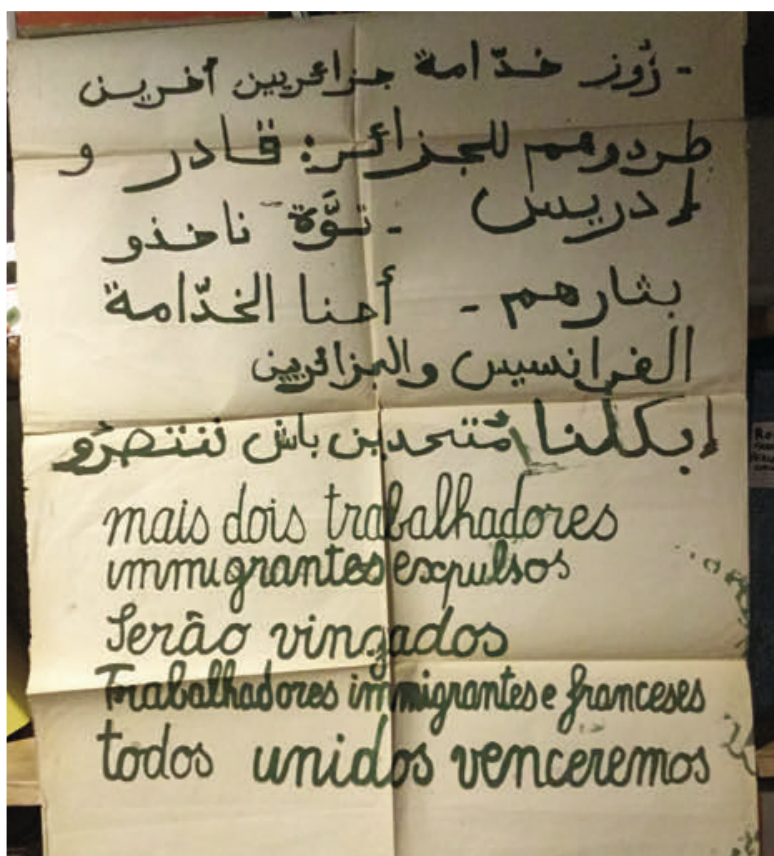 - زُوز خدّامة جزائريين أخرين
طردوهم للجزائر: قادر و
إدريس - توَّة ناخذو
بثارهم - أحنا الخدّامة
الفرانسيس والجزائريين
إبكلنا مُتحدين باش ننتصرُو
mais dois trabalhadores
immigrantes expulsos
Serão vingados
Trabalhadores immigrantes e franceses
todos unidos venceremos